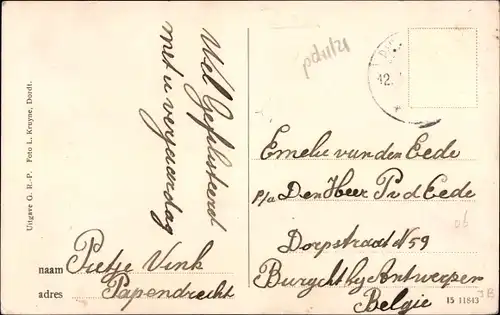 Uitgave G. R. P. Foto L. Kruyne, Dordt.
Wel Gefelisteerd
met u verjaardag
naam Pietje Vink
adres Papendrecht
pd11/21
12.
Emelie van den Eede
p/a Den Heer P v d Eede
Dorpstraat N 59
Burgcht by Antwerpen
Belgie
06
15 11843
JB